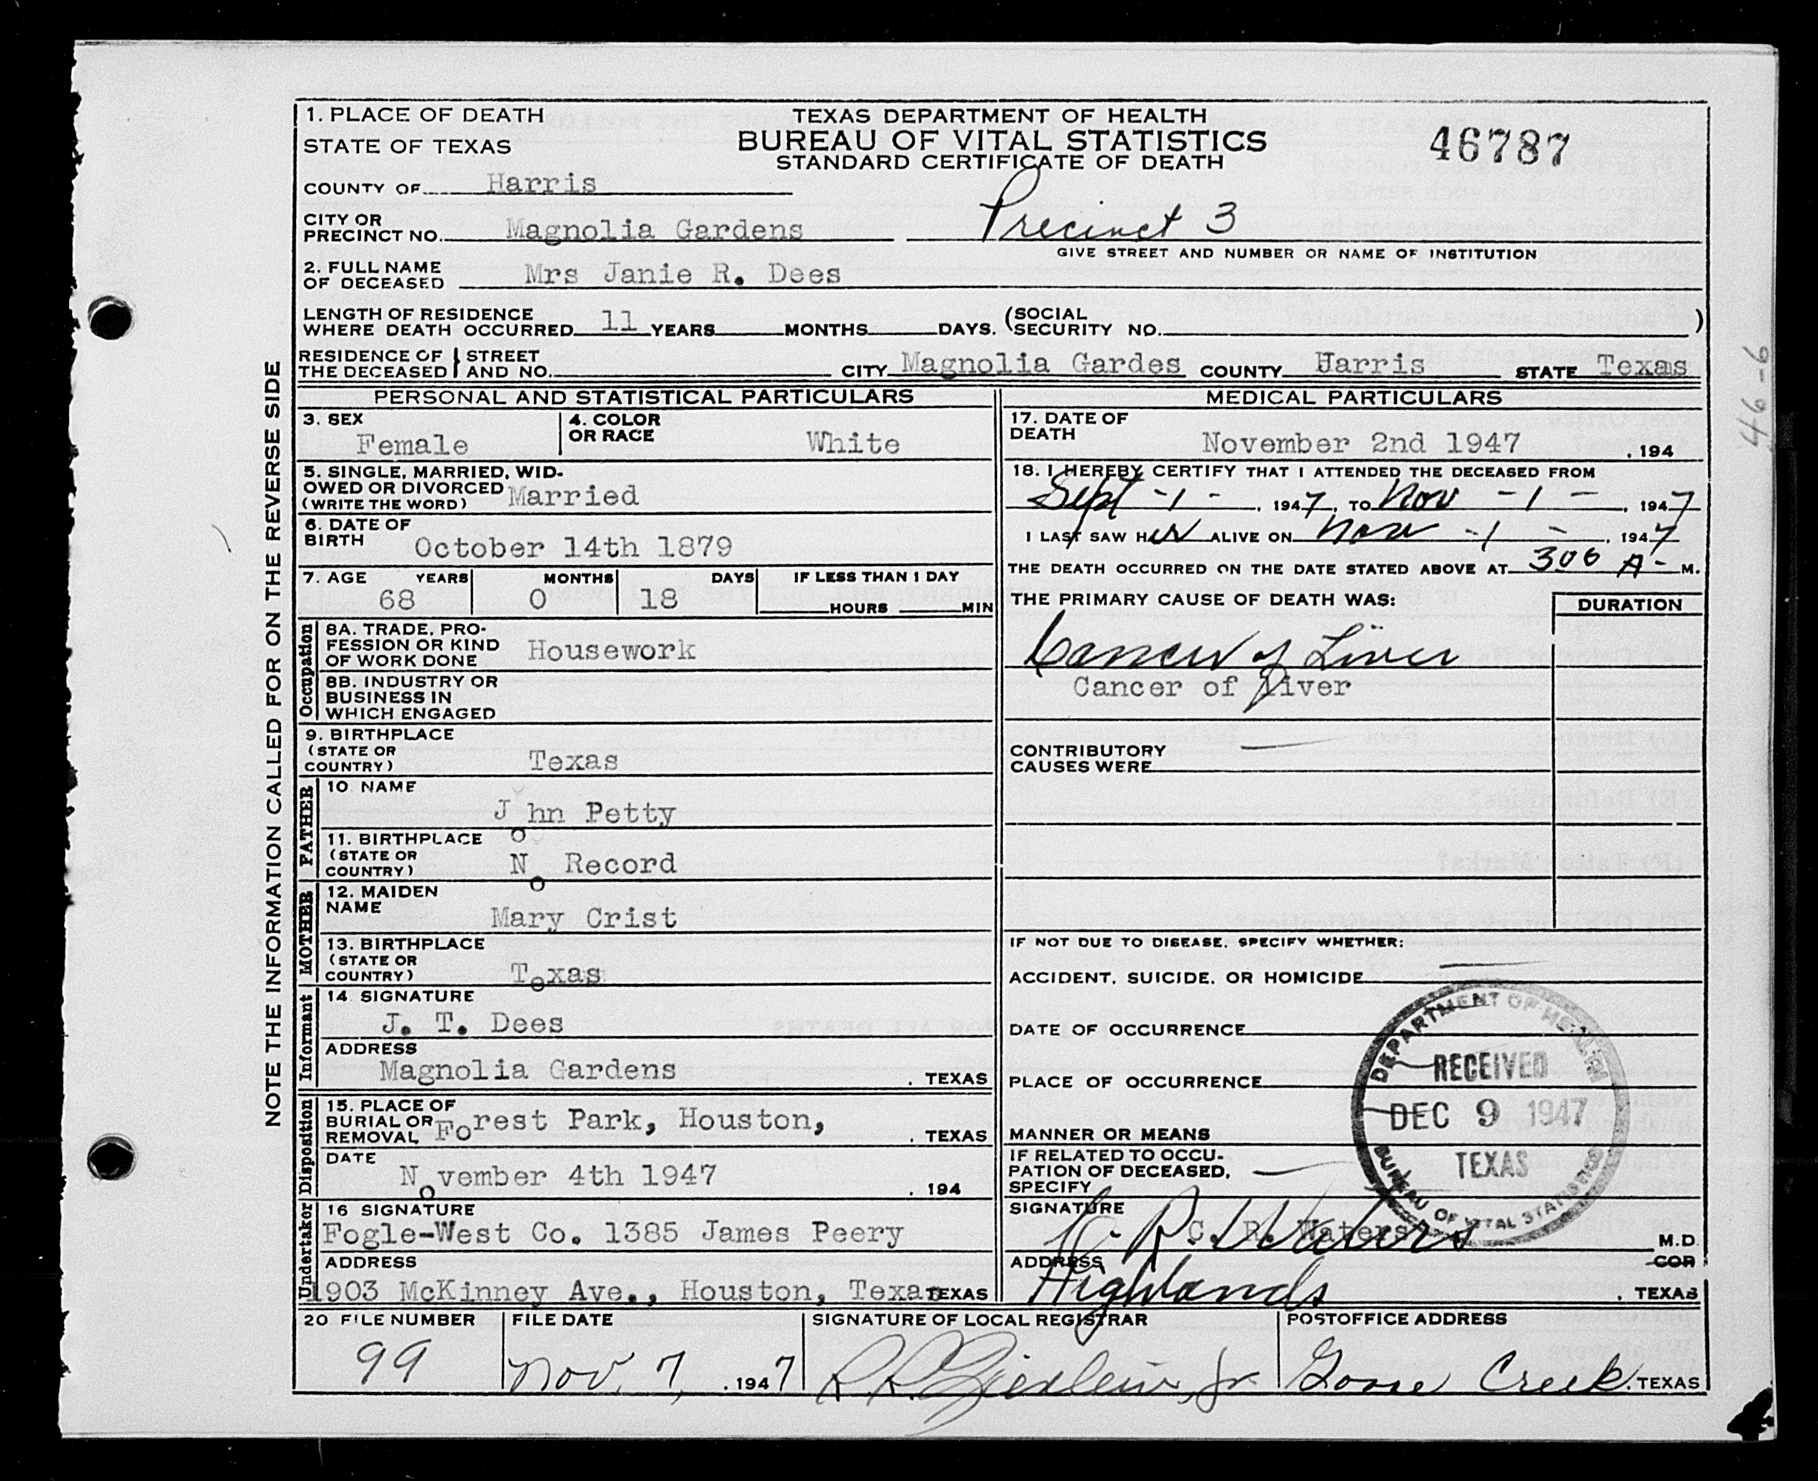 1. PLACE OF DEATH
STATE OF TEXAS
TEXAS DEPARTMENT OF HEALTH
BUREAU OF VITAL STATISTICS
STANDARD CERTIFICATE OF DEATH
46787
COUNTY OF Harris
CITY OR PRECINCT NO. Magnolia Gardens Precinct 3
GIVE STREET AND NUMBER OR NAME OF INSTITUTION
2. FULL NAME OF DECEASED Mrs Janie R. Dees
LENGTH OF RESIDENCE WHERE DEATH OCCURRED 11 YEARS MONTHS DAYS. (SOCIAL SECURITY NO. )
RESIDENCE OF THE DECEASED } STREET AND NO. CITY Magnolia Gardes COUNTY Harris STATE Texas
PERSONAL AND STATISTICAL PARTICULARS
3. SEX Female
4. COLOR OR RACE White
5. SINGLE, MARRIED, WID-
OWED OR DIVORCED
(WRITE THE WORD) Married
6. DATE OF BIRTH October 14th 1879
7. AGE YEARS MONTHS DAYS IF LESS THAN 1 DAY
68 0 18 HOURS MIN
Occupation
8A. TRADE, PRO-
FESSION OR KIND
OF WORK DONE Housework
8B. INDUSTRY OR
BUSINESS IN
WHICH ENGAGED
9. BIRTHPLACE
(STATE OR
COUNTRY) Texas
FATHER
10 NAME
John Petty
11. BIRTHPLACE
(STATE OR
COUNTRY) No Record
MOTHER
12. MAIDEN
NAME Mary Crist
13. BIRTHPLACE
(STATE OR
COUNTRY) Texas
Informant
14. SIGNATURE
J. T. Dees
ADDRESS
Magnolia Gardens , TEXAS
Disposition
15. PLACE OF
BURIAL OR
REMOVAL Forest Park, Houston, , TEXAS
DATE
November 4th 1947 , 194
Undertaker
16 SIGNATURE
Fogle-West Co. 1385 James Peery
ADDRESS
1903 McKinney Ave., Houston, Texas TEXAS
MEDICAL PARTICULARS
17. DATE OF
DEATH November 2nd 1947 , 194
18. I HEREBY CERTIFY THAT I ATTENDED THE DECEASED FROM
Sept -1- , 1947, TO Nov -1- , 1947
I LAST SAW HER ALIVE ON Nov -1- , 1947
THE DEATH OCCURRED ON THE DATE STATED ABOVE AT 306 A- M.
THE PRIMARY CAUSE OF DEATH WAS: DURATION
Cancer of Liver
Cancer of Liver
CONTRIBUTORY
CAUSES WERE
IF NOT DUE TO DISEASE, SPECIFY WHETHER:
ACCIDENT, SUICIDE, OR HOMICIDE
DATE OF OCCURRENCE
PLACE OF OCCURRENCE
MANNER OR MEANS
IF RELATED TO OCCU-
PATION OF DECEASED,
SPECIFY
DEPARTMENT OF HEALTH
RECEIVED
DEC 9 1947
TEXAS
BUREAU OF VITAL STATISTICS
SIGNATURE
C. R. Waters
C. R. Waters M.D.
COR
ADDRESS
Highlands , TEXAS
20 FILE NUMBER
99
FILE DATE
Nov. 7, , 1947
SIGNATURE OF LOCAL REGISTRAR
POSTOFFICE ADDRESS
Goose Creek, TEXAS
NOTE THE INFORMATION CALLED FOR ON THE REVERSE SIDE
46-6
4